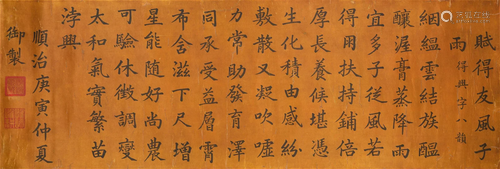 賦得友風子
雨得興字八韻
絪緼雲結族醞
釀渥膏蒸降雨
宜多子從風若
得用扶持鋪倍
厚長養候堪憑
生化積由感紛
敷散又凝吹噓
力常助發育澤
同承受益層霄
布舍滋下尺增
星能随好尚農
可驗休徵調變
太和氣實繁苗
浡興
順治庚寅仲夏
御製